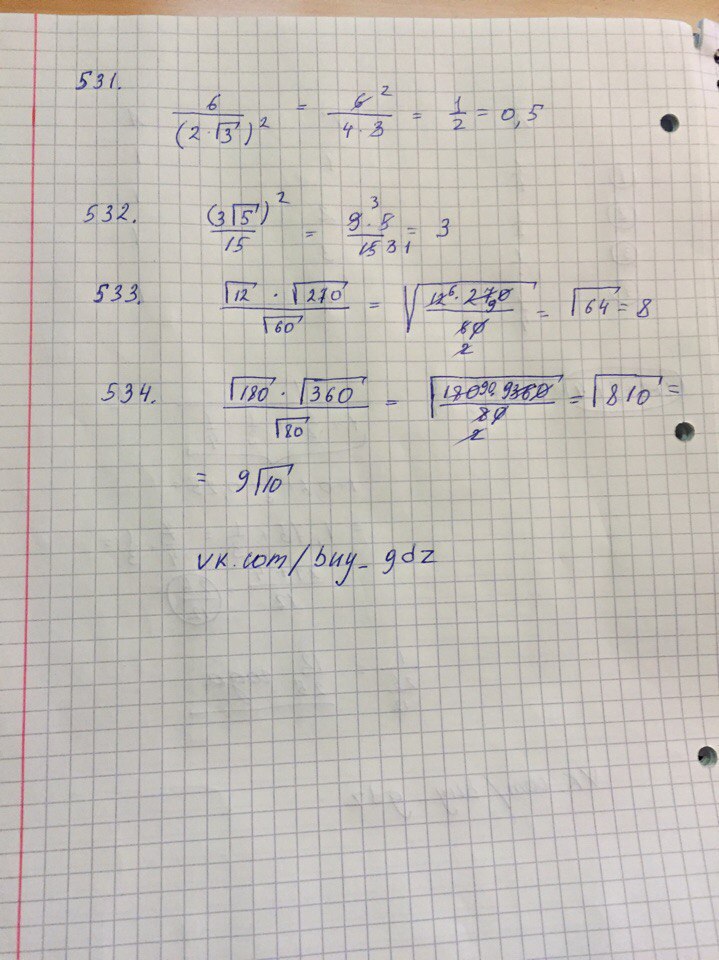 531. 6/(2·√3)² = 6²/(4·3) = 1/2 = 0,5
532. (3√5)²/15 = 9³·5/15 3 1 = 3
533. √12 · √270/√60 = √(12⁶·270 9/60 2) = √64 = 8
534. √180 · √360/√80 = √(180 90·9 360/80 2) = √810 =
= 9√10
vk.com/buy_gdz